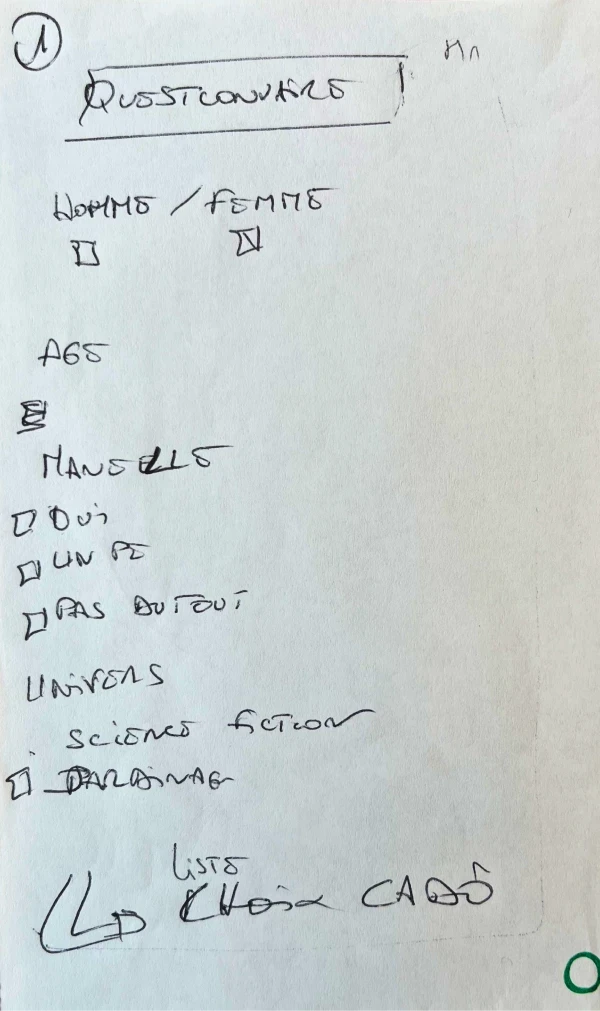 1
QUESTIONNAIRE
HOMME / FEMME
AGE
MANUELLE
OUi
UN PE
PAS AUTOUT
UNiVERS
SCiENCE fiCTION
JARDiNAGE
LiSTE
CHOix CADÔ